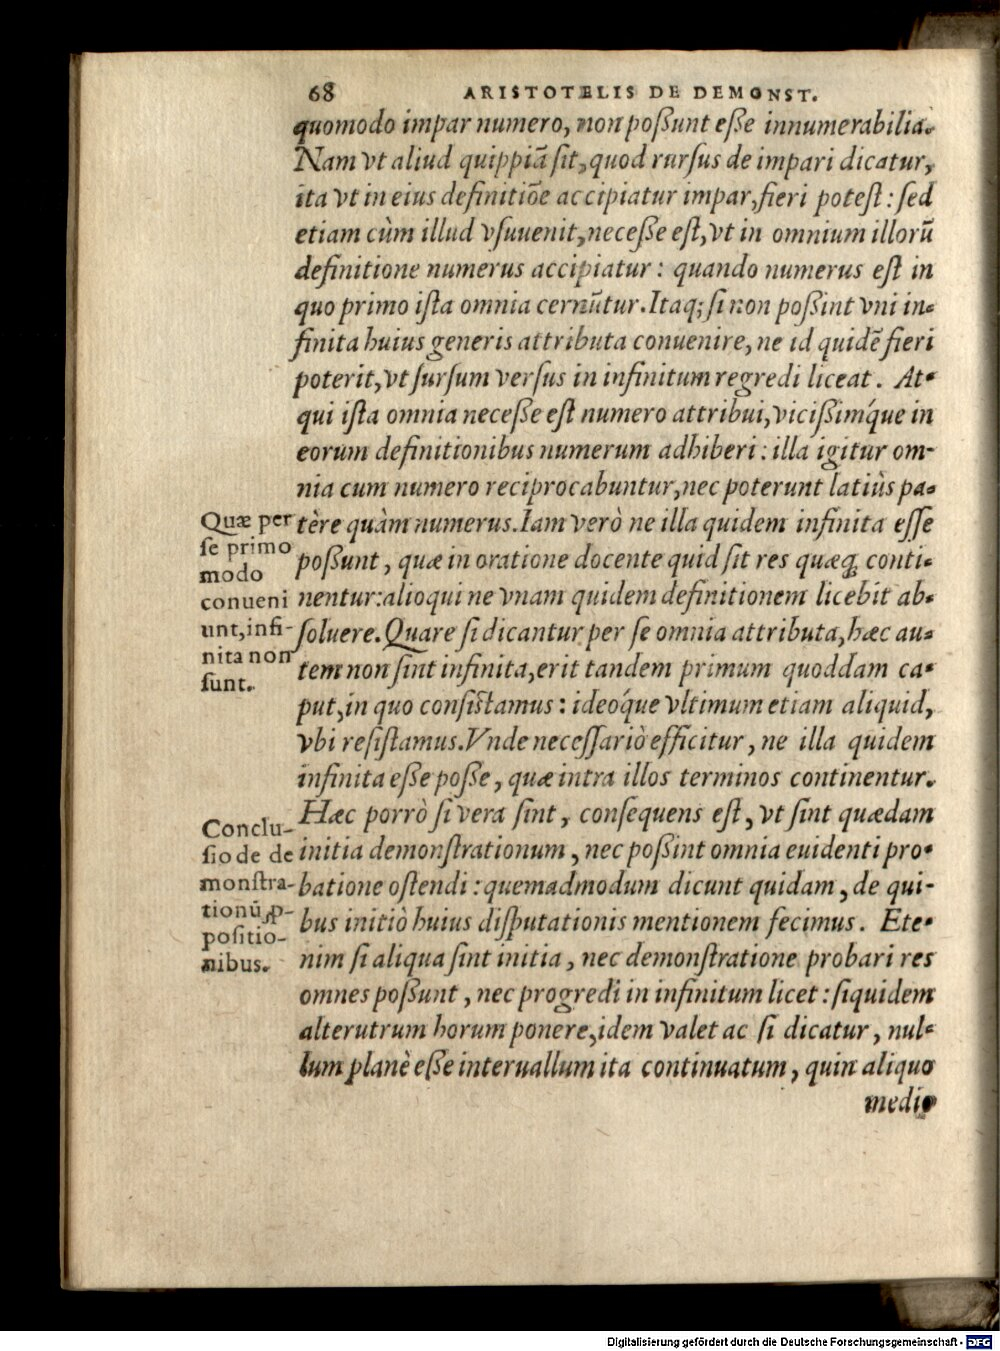 68 ARISTOTELIS DE DEMONST.
quomodo impar numero, non poßunt eße innumerabilia.
Nam vt aliud quippiã ſit, quod rurſus de impari dicatur,
ita vt in eius definitiõe accipiatur impar, fieri poteſt : ſed
etiam cùm illud vſuuenit, neceße eſt, vt in omnium illorũ
definitione numerus accipiatur : quando numerus eſt in
quo primo iſta omnia cernũtur. Itaq; ſi non poßint vni in-
finita huius generis attributa conuenire, ne id quidẽ fieri
poterit, vt ſurſum verſus in infinitum regredi liceat. At-
qui iſta omnia neceße eſt numero attribui, vicißimq́ue in
eorum definitionibus numerum adhiberi : illa igitur om-
nia cum numero reciprocabuntur, nec poterunt latiùs pa-
tère quàm numerus. Iam verò ne illa quidem infinita eſſe
poßunt, quæ in oratione docente quid ſit res quæq; conti-
nentur: alioqui ne vnam quidem definitionem licebit ab-
ſoluere. Quare ſi dicantur per ſe omnia attributa, hæc au-
tem non ſint infinita, erit tandem primum quoddam ca-
put, in quo conſiſtamus : ideóque vltimum etiam aliquid,
vbi reſiſtamus. Vnde neceſſariò efficitur, ne illa quidem
infinita eße poße, quæ intra illos terminos continentur.
Hæc porrò ſi vera ſint, conſequens eſt, vt ſint quædam
initia demonſtrationum, nec poßint omnia euidenti pro-
batione oſtendi : quemadmodum dicunt quidam, de qui-
bus initiò huius diſputationis mentionem fecimus. Ete-
nim ſi aliqua ſint initia, nec demonſtratione probari res
omnes poßunt, nec progredi in infinitum licet : ſiquidem
alterutrum horum ponere, idem valet ac ſi dicatur, nul-
lum planè eße interuallum ita continuatum, quin aliquo
medio
Quæ per
ſe primo
modo
conueni
unt, infi-
nita non
ſunt.
Conclu-
ſio de de
monſtra-
tionũ ꝓ-
poſitio-
nibus.
Digitalisierung gefördert durch die Deutsche Forschungsgemeinschaft - DFG